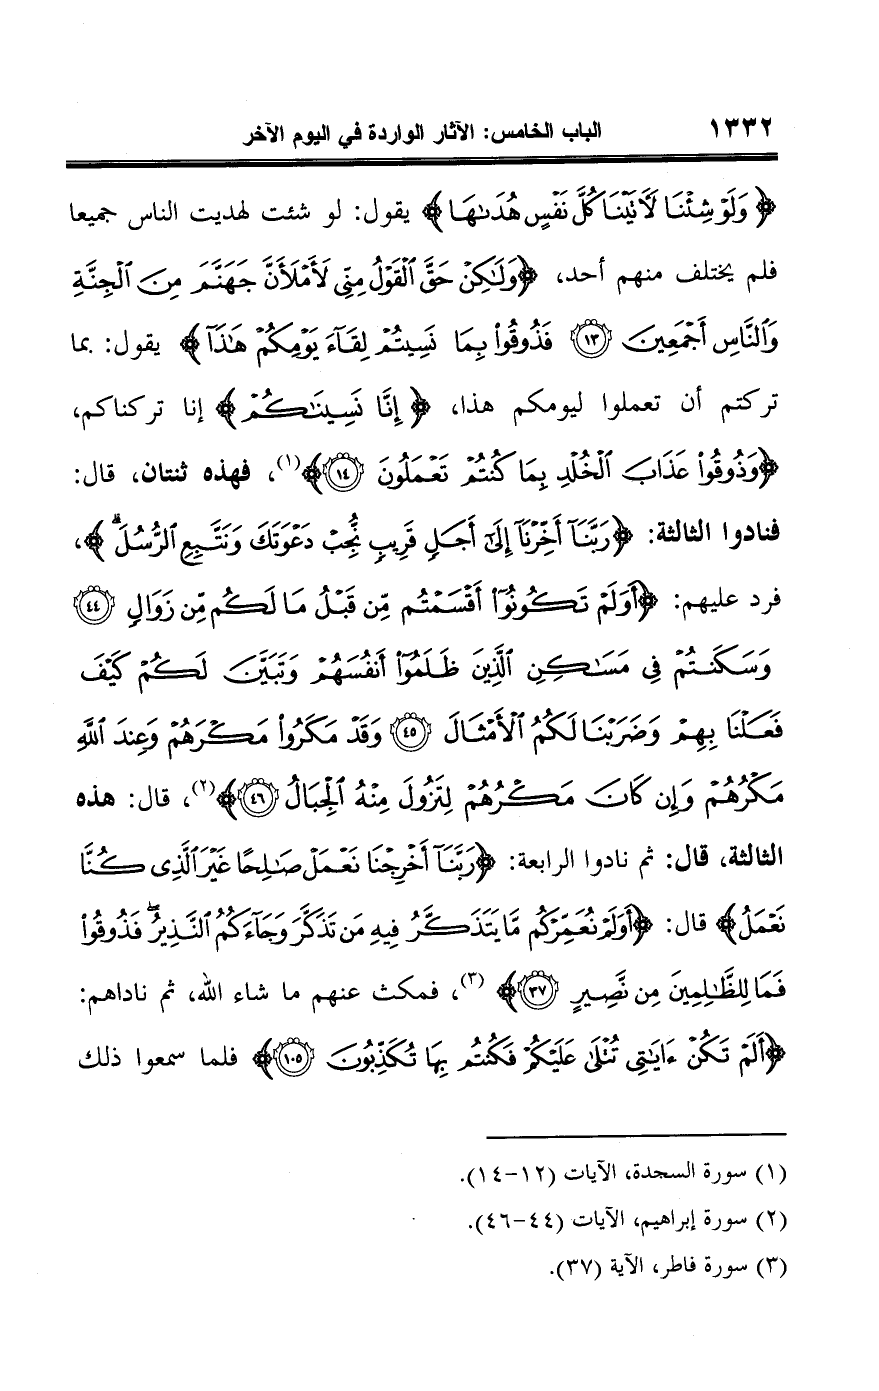 ١٣٣٢ الباب الخامس: الآثار الواردة في اليوم الآخر
﴿وَلَوْ شِئْنَا لَآتَيْنَا كُلَّ نَفْسٍ هُدَىٰهَا﴾ يقول: لو شئت لهديت الناس جميعا
فلم يختلف منهم أحد، ﴿وَلَٰكِنْ حَقَّ ٱلْقَوْلُ مِنِّى لَأَمْلَأَنَّ جَهَنَّمَ مِنَ ٱلْجِنَّةِ
وَٱلنَّاسِ أَجْمَعِينَ ١٣ فَذُوقُوا۟ بِمَا نَسِيتُمْ لِقَآءَ يَوْمِكُمْ هَٰذَآ﴾ يقول: بما
تركتم أن تعملوا ليومكم هذا، ﴿إِنَّا نَسِينَٰكُمْ﴾ إنا تركناكم،
﴿وَذُوقُوا۟ عَذَابَ ٱلْخُلْدِ بِمَا كُنتُمْ تَعْمَلُونَ ١٤﴾(١)، فهذه ثنتان، قال:
فنادوا الثالثة: ﴿رَبَّنَآ أَخِّرْنَآ إِلَىٰٓ أَجَلٍ قَرِيبٍ نُّجِبْ دَعْوَتَكَ وَنَتَّبِعِ ٱلرُّسُلَ ۗ﴾،
فرد عليهم: ﴿أَوَلَمْ تَكُونُوٓا۟ أَقْسَمْتُم مِّن قَبْلُ مَا لَكُم مِّن زَوَالٍ ٤٤
وَسَكَنتُمْ فِى مَسَٰكِنِ ٱلَّذِينَ ظَلَمُوٓا۟ أَنفُسَهُمْ وَتَبَيَّنَ لَكُمْ كَيْفَ
فَعَلْنَا بِهِمْ وَضَرَبْنَا لَكُمُ ٱلْأَمْثَالَ ٤٥ وَقَدْ مَكَرُوا۟ مَكْرَهُمْ وَعِندَ ٱللَّهِ
مَكْرُهُمْ وَإِن كَانَ مَكْرُهُمْ لِتَزُولَ مِنْهُ ٱلْجِبَالُ ٤٦﴾(٢)، قال: هذه
الثالثة، قال: ثم نادوا الرابعة: ﴿رَبَّنَآ أَخْرِجْنَا نَعْمَلْ صَٰلِحًا غَيْرَ ٱلَّذِى كُنَّا
نَعْمَلُ﴾ قال: ﴿أَوَلَمْ نُعَمِّرْكُم مَّا يَتَذَكَّرُ فِيهِ مَن تَذَكَّرَ وَجَآءَكُمُ ٱلنَّذِيرُ ۖ فَذُوقُوا۟
فَمَا لِلظَّٰلِمِينَ مِن نَّصِيرٍ ٣٧﴾(٣)، فمكث عنهم ما شاء الله، ثم ناداهم:
﴿أَلَمْ تَكُنْ ءَايَٰتِى تُتْلَىٰ عَلَيْكُمْ فَكُنتُم بِهَا تُكَذِّبُونَ ١٠٥﴾ فلما سمعوا ذلك
(١) سورة السجدة، الآيات (١٢-١٤).
(٢) سورة إبراهيم، الآيات (٤٤-٤٦).
(٣) سورة فاطر، الآية (٣٧).